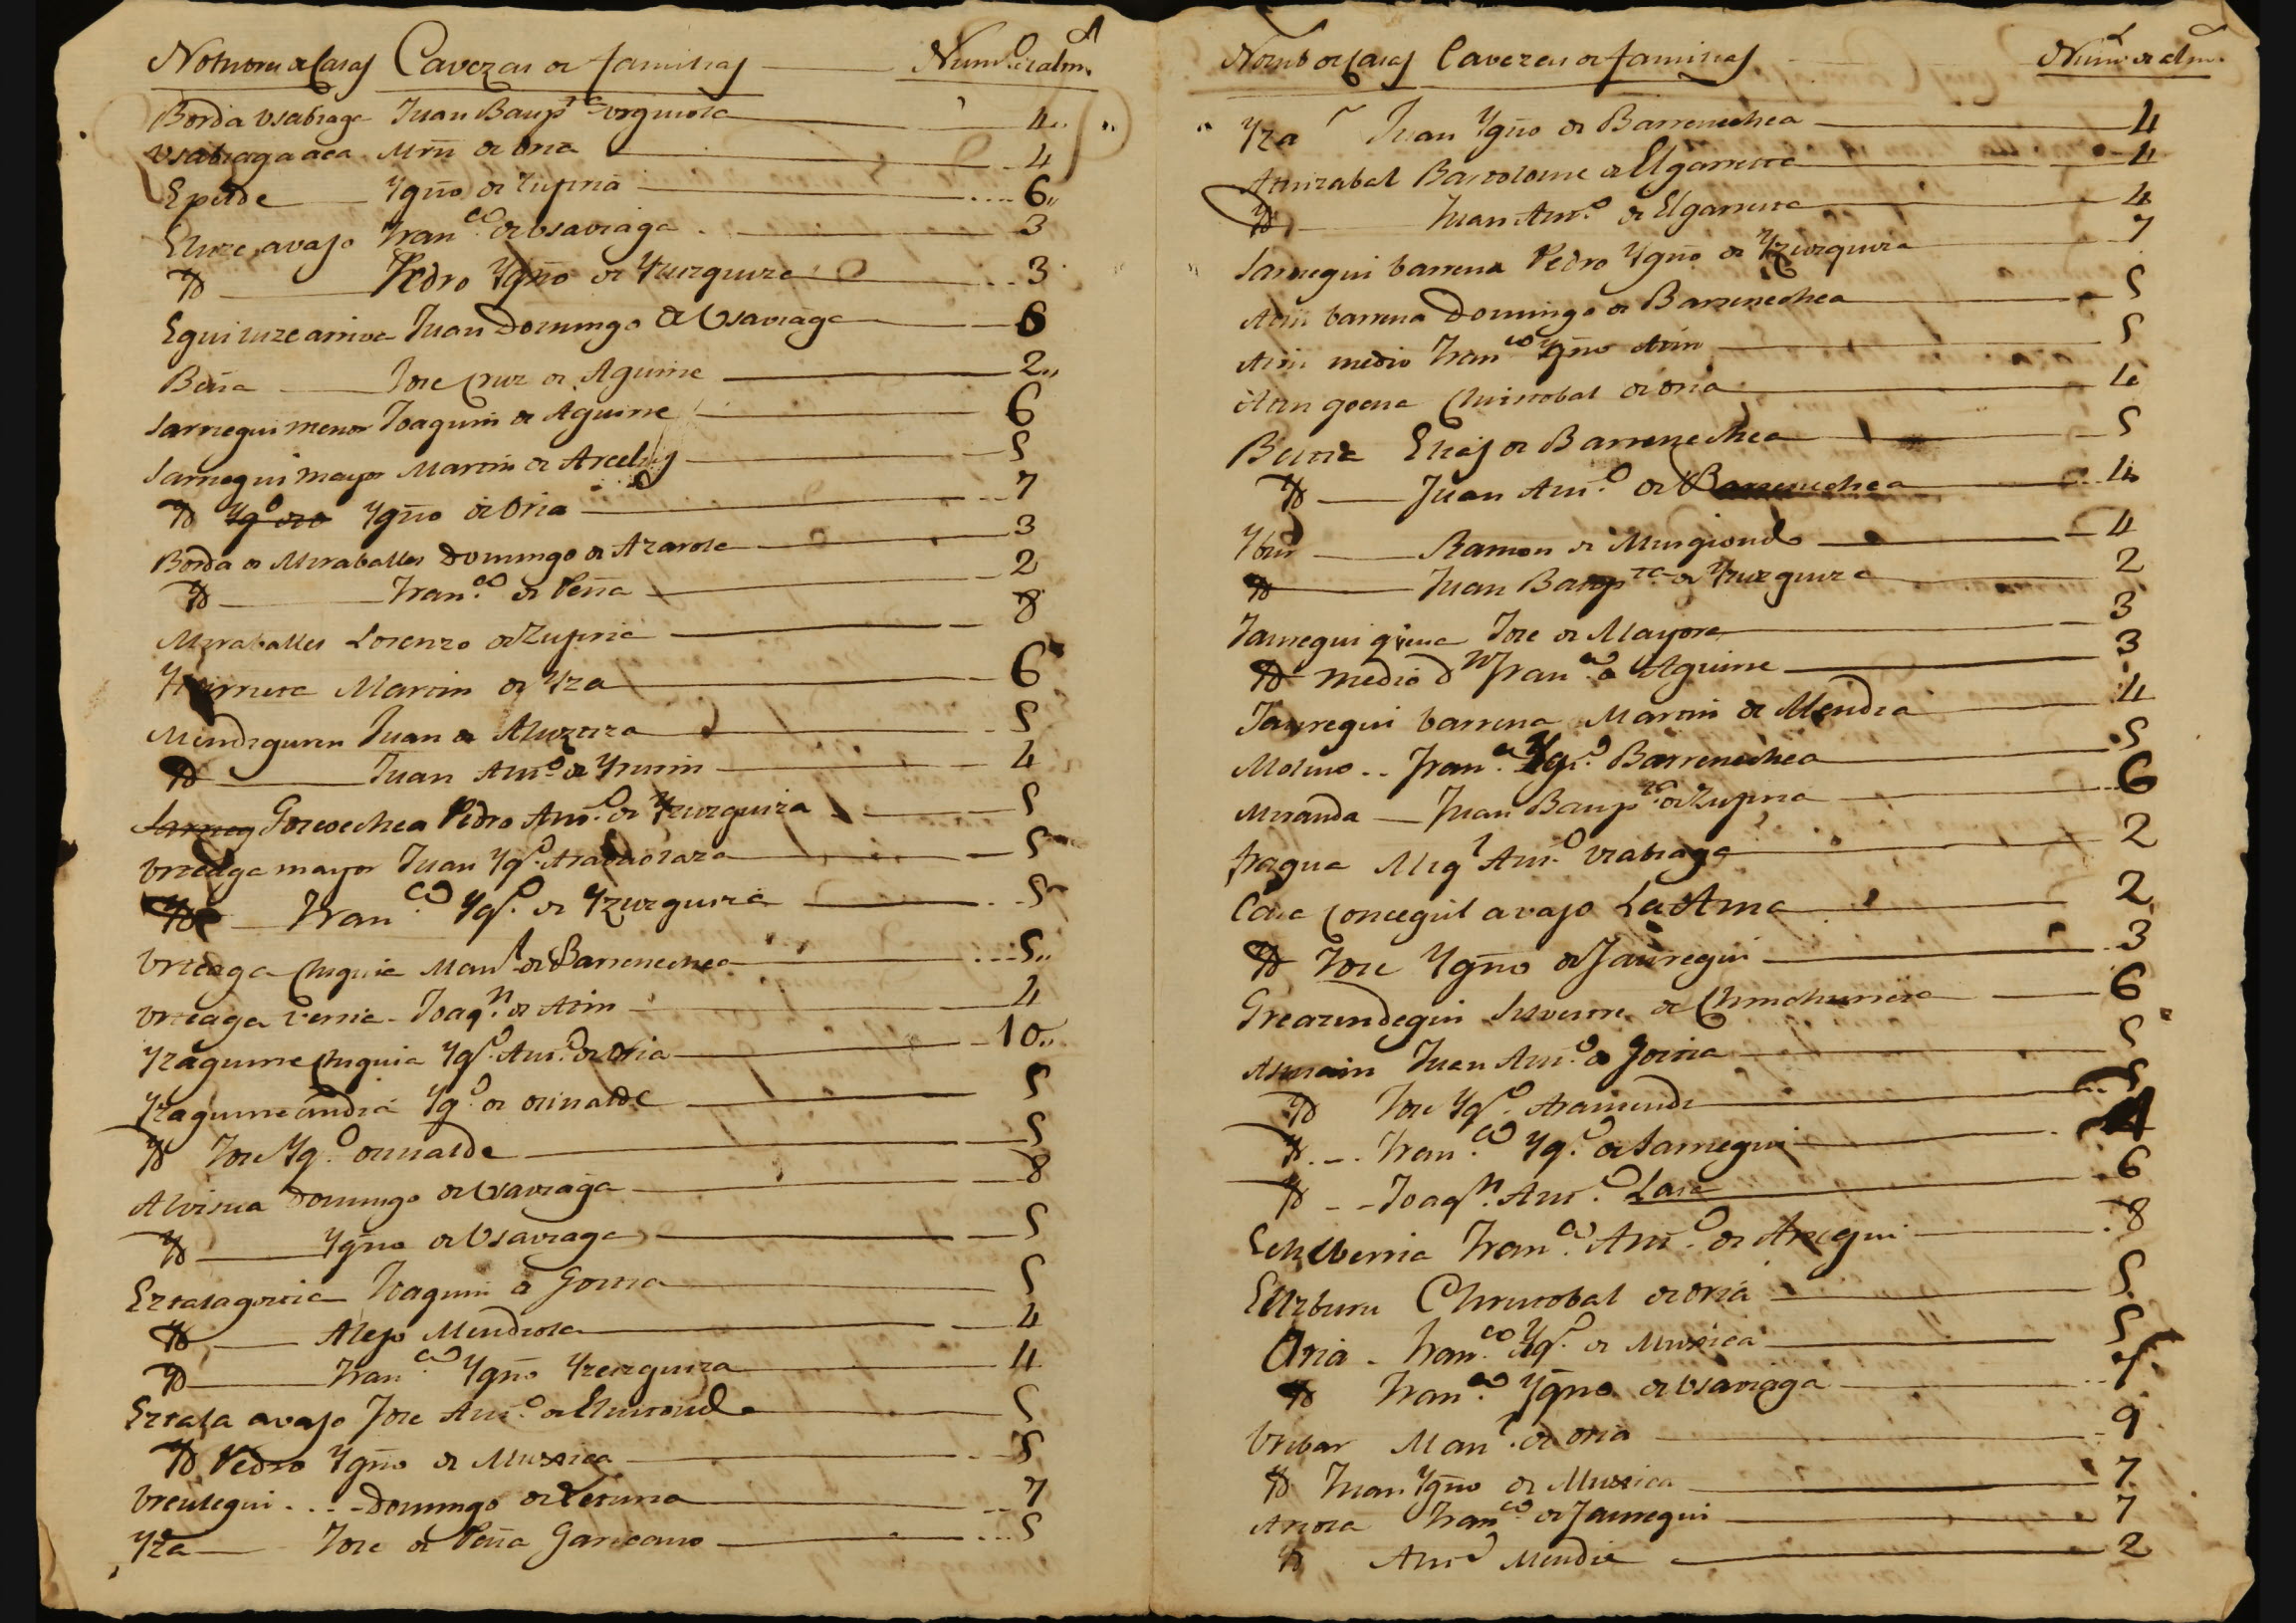 Nombres de Casas Cavezas de familias Num.o de alm.s
Borda Usabiaga Juan Baup.ta 4
Usabiaga Mrñ de Oria 4
Epelde Ygño de Zufiria 6
avajo Fran.co de Usaviaga 3
Yd Pedro Ygño de Yzurguiza 3
Eguiluze arriva Juan Domingo de Usaviaga 6
Jose Cruz de Aguirre 2
Jarnegui menor Joaquin de Aguirre 6
Jarnegui mayor Martin de Arcelus 5
Yd Ygño de Oria 7
Borda de Miraballes Domingo de Azarola 3
Yd Fran.co de Peña 2
Miraballes Lorenzo de Zufiria 8
Martin de Yza 6
Mendeguren Juan de 5
Yd Juan Ant.o de Yrurin 4
Pedro Ant.o de Yzurguiza 5
Urteaga mayor Juan Yg.o 5
Yd Fran.co Yg.o de Yzurguiza 5
Urteaga Chiquia Man.l de Barrenechea 5
Urteaga Joaq.n de Arin 4
Yzaguirre Chiquia Yg.o Ant.o de Oria 10
Yzaguirre andia Yg.o de Orinalde 5
Yd Jose Yg.o Orinalde 5
Alvisua Domingo de Usaviaga 8
Yd Ygño de Usaviaga 5
Joaquin de Goitia 5
Yd Alejo Mendiola 4
Yd Fran.co Ygño Yzurguiza 4
Ezcala avajo Jose Ant.o de 5
Yd Pedro Ygño de Muxica 5
Domingo de 7
Yza Jose de Peña Garicano 5
Nomb de Casas Cavezas de familias Num.o de alm.s
Yza Juan Ygño de Barrenechea 4
Bartolome de Elgarresta 4
Yd Juan Ant.o de Elgarresta 4
barrena Pedro Ygño de Yzurguiza 7
Arin barrena Domingo de Barrenechea 5
Arin medio Fran.co Ygño Arin 5
Arin goena Christobal de Oria 4
Elias de Barrenechea 5
Yd Juan Ant.o de Barrenechea 4
Ramon de Murgiondo 4
Yd Juan Baup.ta de Yzurguiza 2
Jauregui goena Jose de Mayora 3
Yd medio d.n Fran.co de Aguirre 3
Jauregui barrena Martin de Mendia 4
Molino Fran.co Yg.o Barrenechea 5
Miranda Juan Baup.ta de Zufiria 6
fragua Mig.l Ant.o Usabiaga 2
Casa Concegil avajo La Ama 2
Yd Jose Ygño de Jauregui 3
Silvestre de 6
Juan Ant.o de Goitia 5
Yd Jose Yg.o Aramendi 5
Yd Fran.co Yg.o de Jarnegui 4
Yd Joaq.n Ant.o Lasa 6
Echeberria Fran.co Ant.o de 8
Christobal de Oria 5
Oria Fran.co Yg.o de Muxica 5
Yd Fran.co Ygño de Usaviaga 7
Uribar Man.l de Oria 9
Yd Juan Ygño de Muxica 7
Ariola Fran.co de Jauregui 7
Yd Ant.o Mendia 2